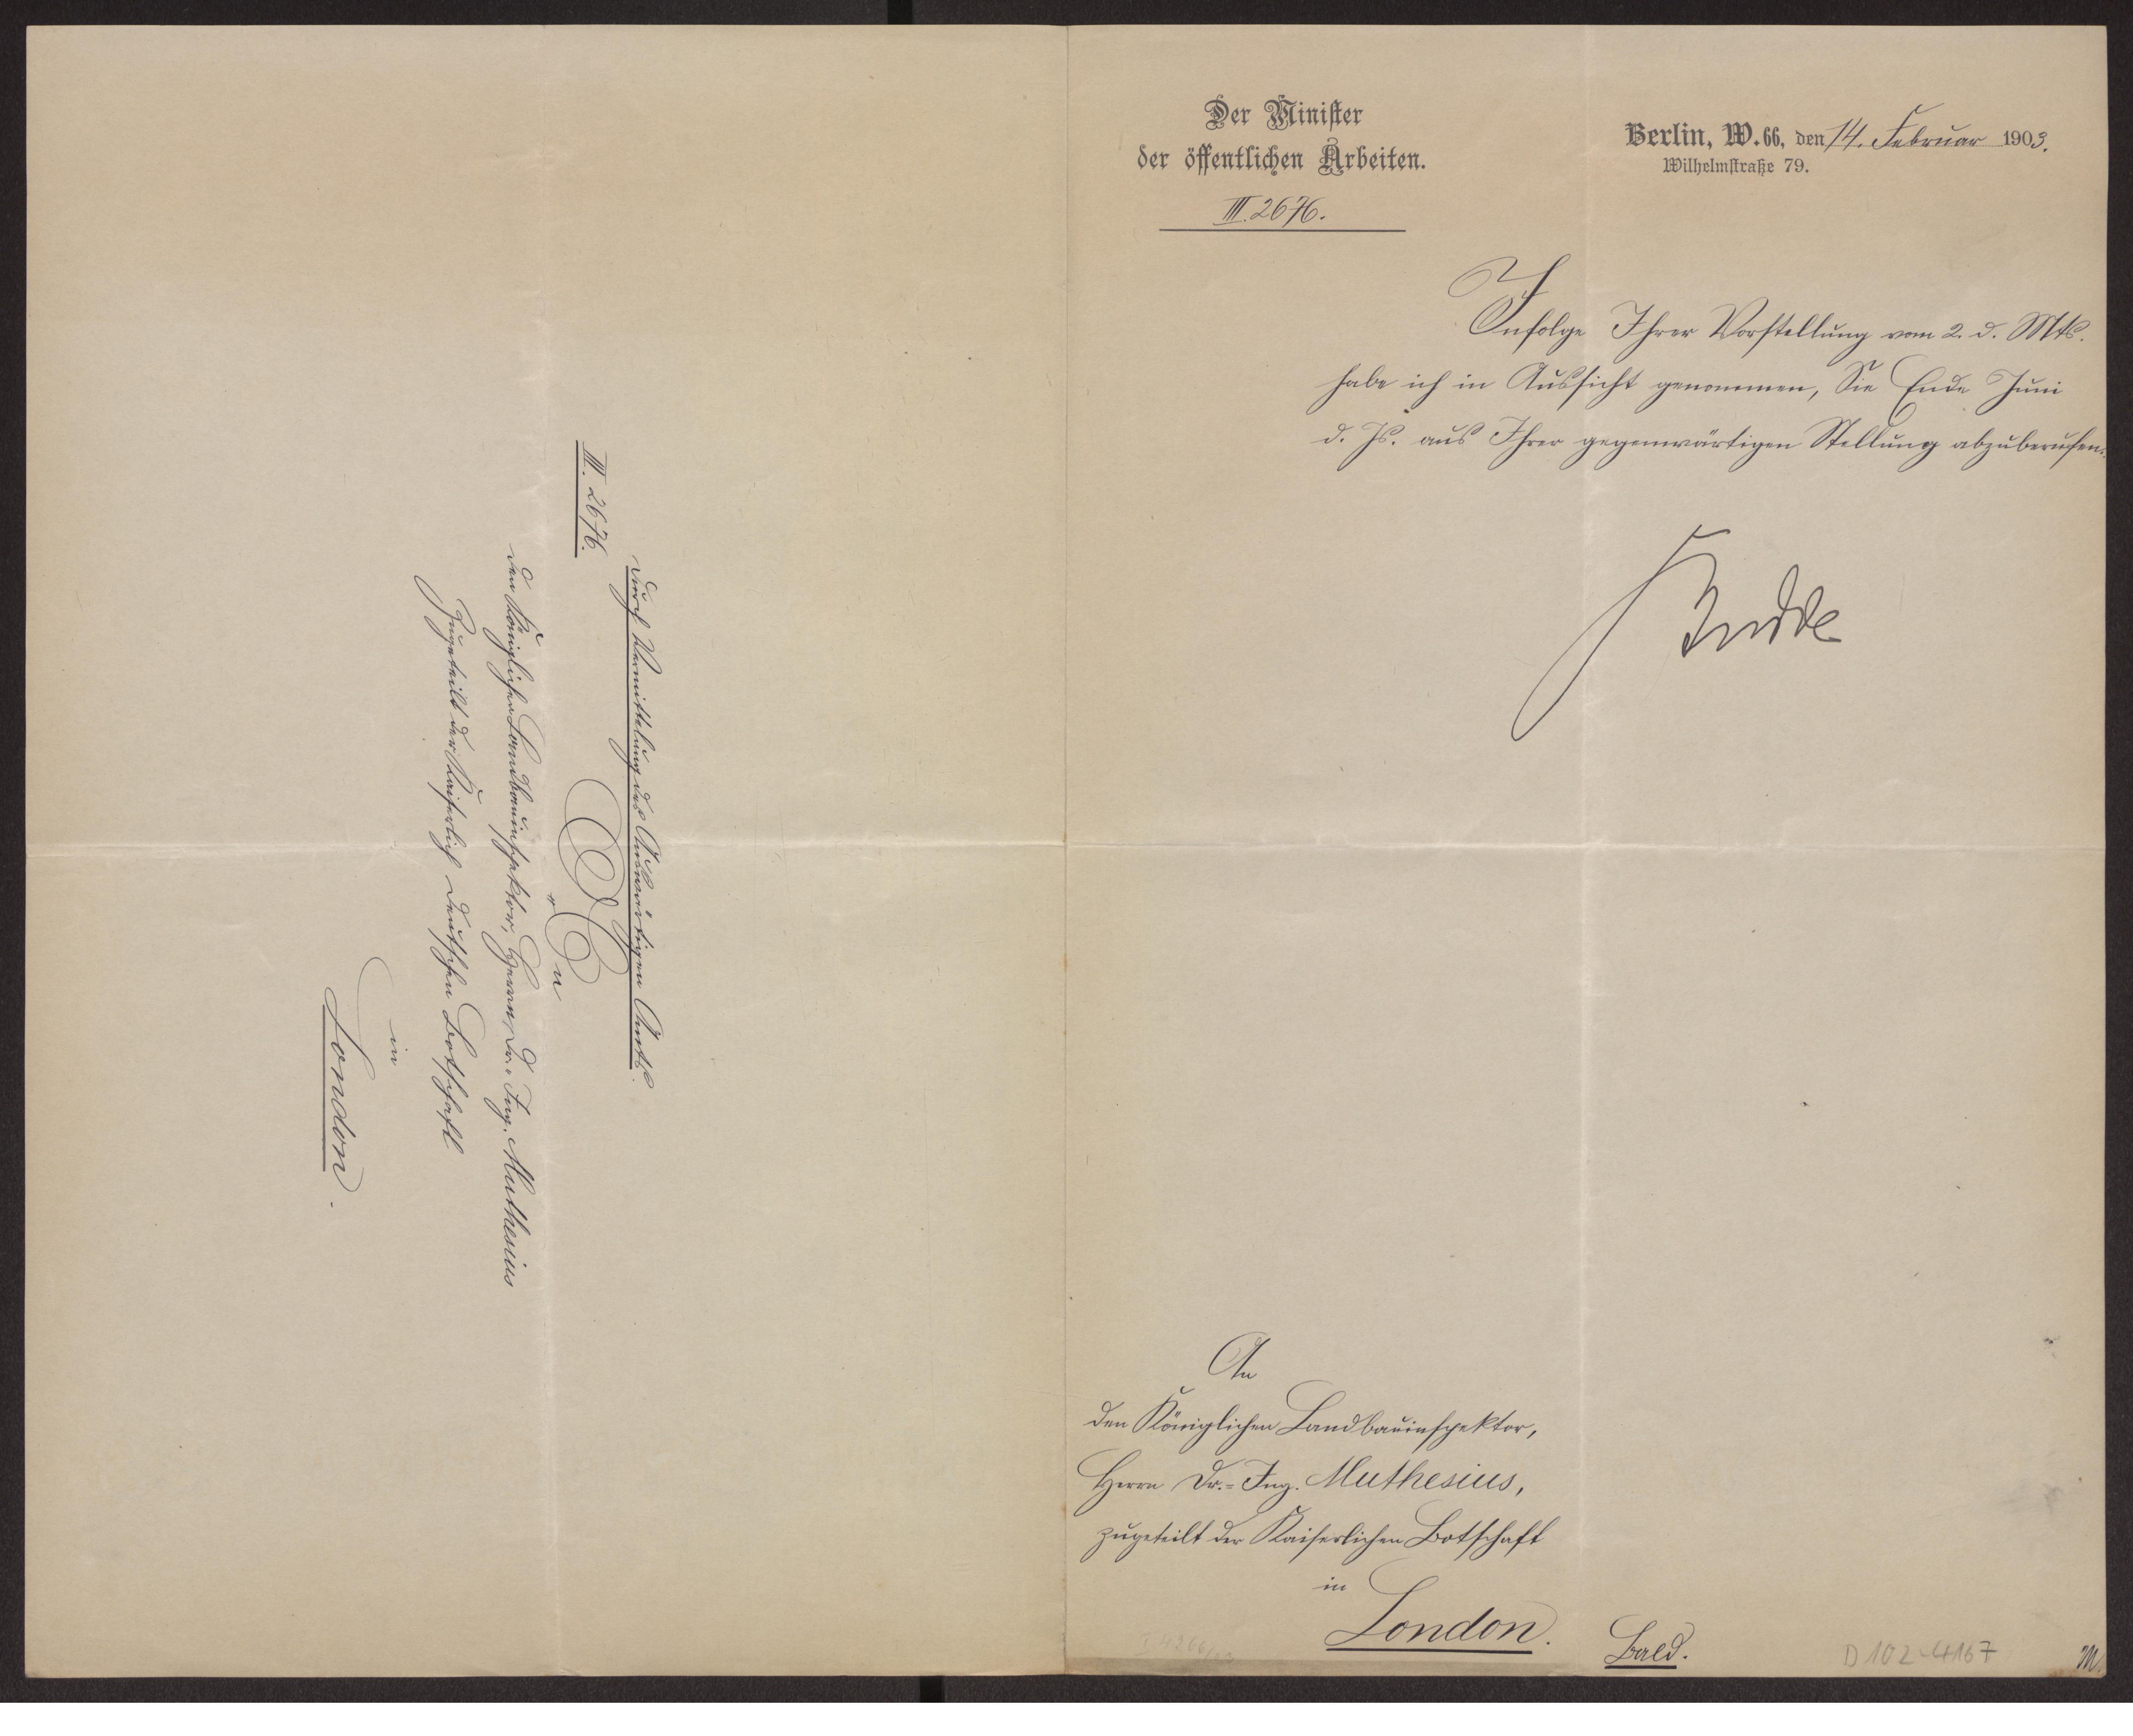 Der Minister
der öffentlichen Arbeiten.
III. 2676.
Berlin, W. 66, den 14. Februar 1903.
Wilhelmstraße 79.
Infolge Ihrer Vorstellung vom 2. d. Mts.
habe ich in Aussicht genommen, Sie Ende Juni
d. Js. aus Ihrer gegenwärtigen Stellung abzuberufen.
Budde
An
den Königlichen Landbauinspektor,
Herrn Dr.=Ing. Muthesius,
zugeteilt der Kaiserlichen Botschaft
in
London.
Bald.
D 102-4167
M.
Durch Vermittelung des Auswärtigen Amts.
III. 2676.
An
den Königlichen Landbauinspektor, Herrn Dr.-Ing. Muthesius
Zugeteilt der Kaiserlich Deutschen Botschaft
in
London.